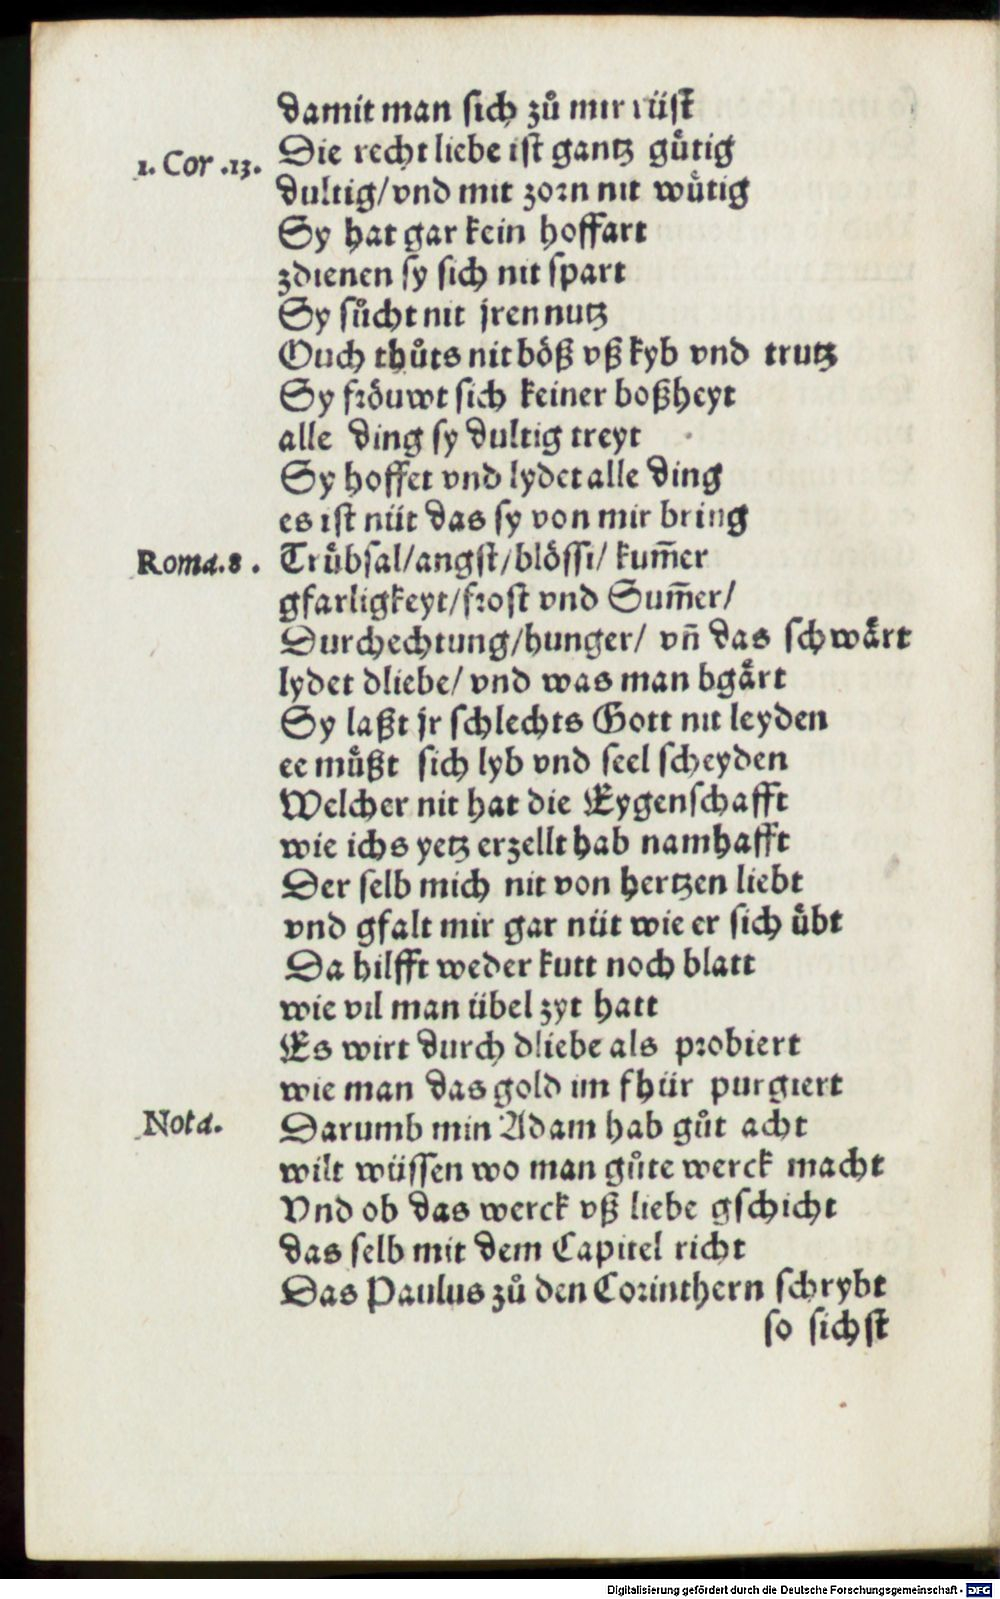 damit man sich zů mir rüst
1. Cor .13. Die recht liebe ist gantz gůtig
dultig/vnd mit zorn nit wůtig
Sy hat gar kein hoffart
zdienen sy sich nit spart
Sy sůcht nit jren nutz
Ouch thůts nit böß vß kyb vnd trutz
Sy fröuwt sich keiner boßheyt
alle ding sy dultig treyt
Sy hoffet vnd lydet alle ding
es ist nüt das sy von mir bring
Roma.8. Trůbsal/angst/blössi/ kum̃er
gfarligkeyt/frost vnd Sum̃er/
Durchechtung/hunger/ vñ das schwårt
lydet dliebe/ vnd was man bgårt
Sy laßt jr schlechts Gott nit leyden
ee můßt sich lyb vnd seel scheyden
Welcher nit hat die Eygenschafft
wie ichs yetz erzellt hab namhafft
Der selb mich nit von hertzen liebt
vnd gfalt mir gar nüt wie er sich ůbt
Da hilfft weder kutt noch blatt
wie vil man übel zyt hatt
Es wirt durch dliebe als probiert
wie man das gold im fhür purgiert
Nota. Darumb min Adam hab gůt acht
wilt wüssen wo man gůte werck macht
Vnd ob das werck vß liebe gschicht
das selb mit dem Capitel richt
Das Paulus zů den Corinthern schrybt
so sichst
Digitalisierung gefördert durch die Deutsche Forschungsgemeinschaft - DFG